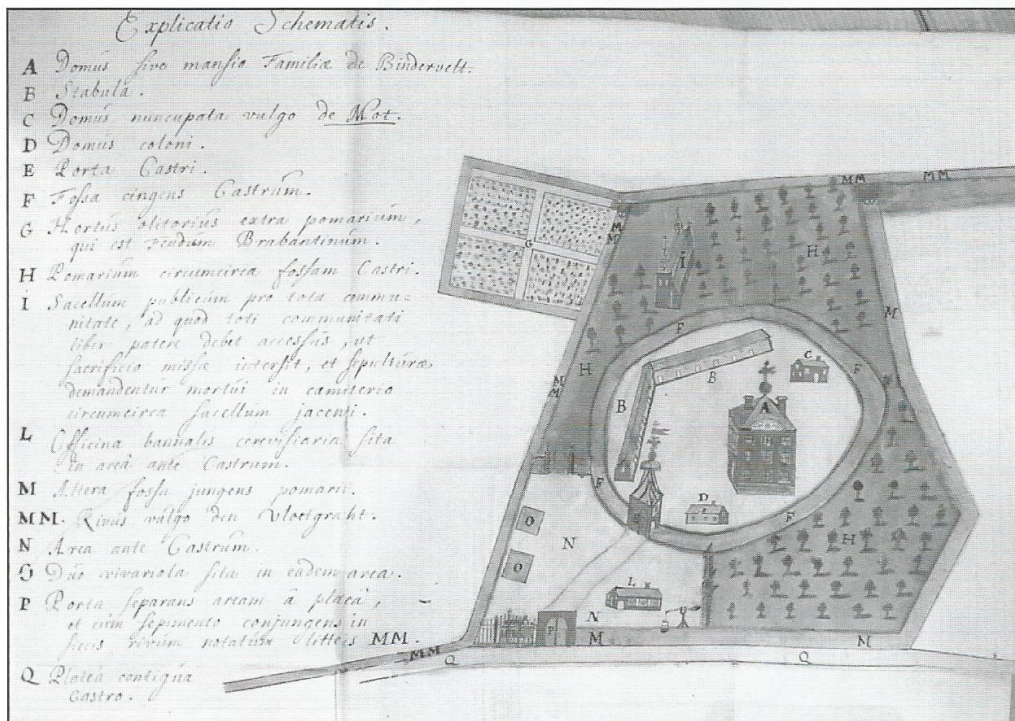 Explicatio Schematis.
A Domus sive mansio Familiæ de Bindervelt.
B Stabula.
C Domus nuncupata vulgo de Mot.
D Domus coloni.
E Porta Castri.
F Fossa cingens Castrum.
G Hortus olitorius extra pomarium,
qui est Feudum Brabantinum.
H Pomarium circumcirca fossam Castri.
I Sacellum publicum pro tota commu-
nitate, ad quod toti communitati
liber patere debet accessus, ut
sacrificio missæ intersit, et sepulturæ
demandentur mortui in cæmiterio
circumcirca sacellum jacenti.
L Officina bannalis cerevisiaria sita
in areâ ante Castrum.
M Altera fossa jungens pomarii.
MM. Rivus vulgo den Vloetgraht.
N Area ante Castrum.
O Duo vivariola sita in eadem area.
P Porta separans aream â placâ,
et cum sepimento conjungens in
siccis rivum notatum litteris MM.
Q Platea contigua
Castro.
MM
MM
G
I
H
M
MM
F
C
H
F
B
A
B
MM
M
F
D
F
O
N
H
O
L
P
N
M
M
MM
Q
Q